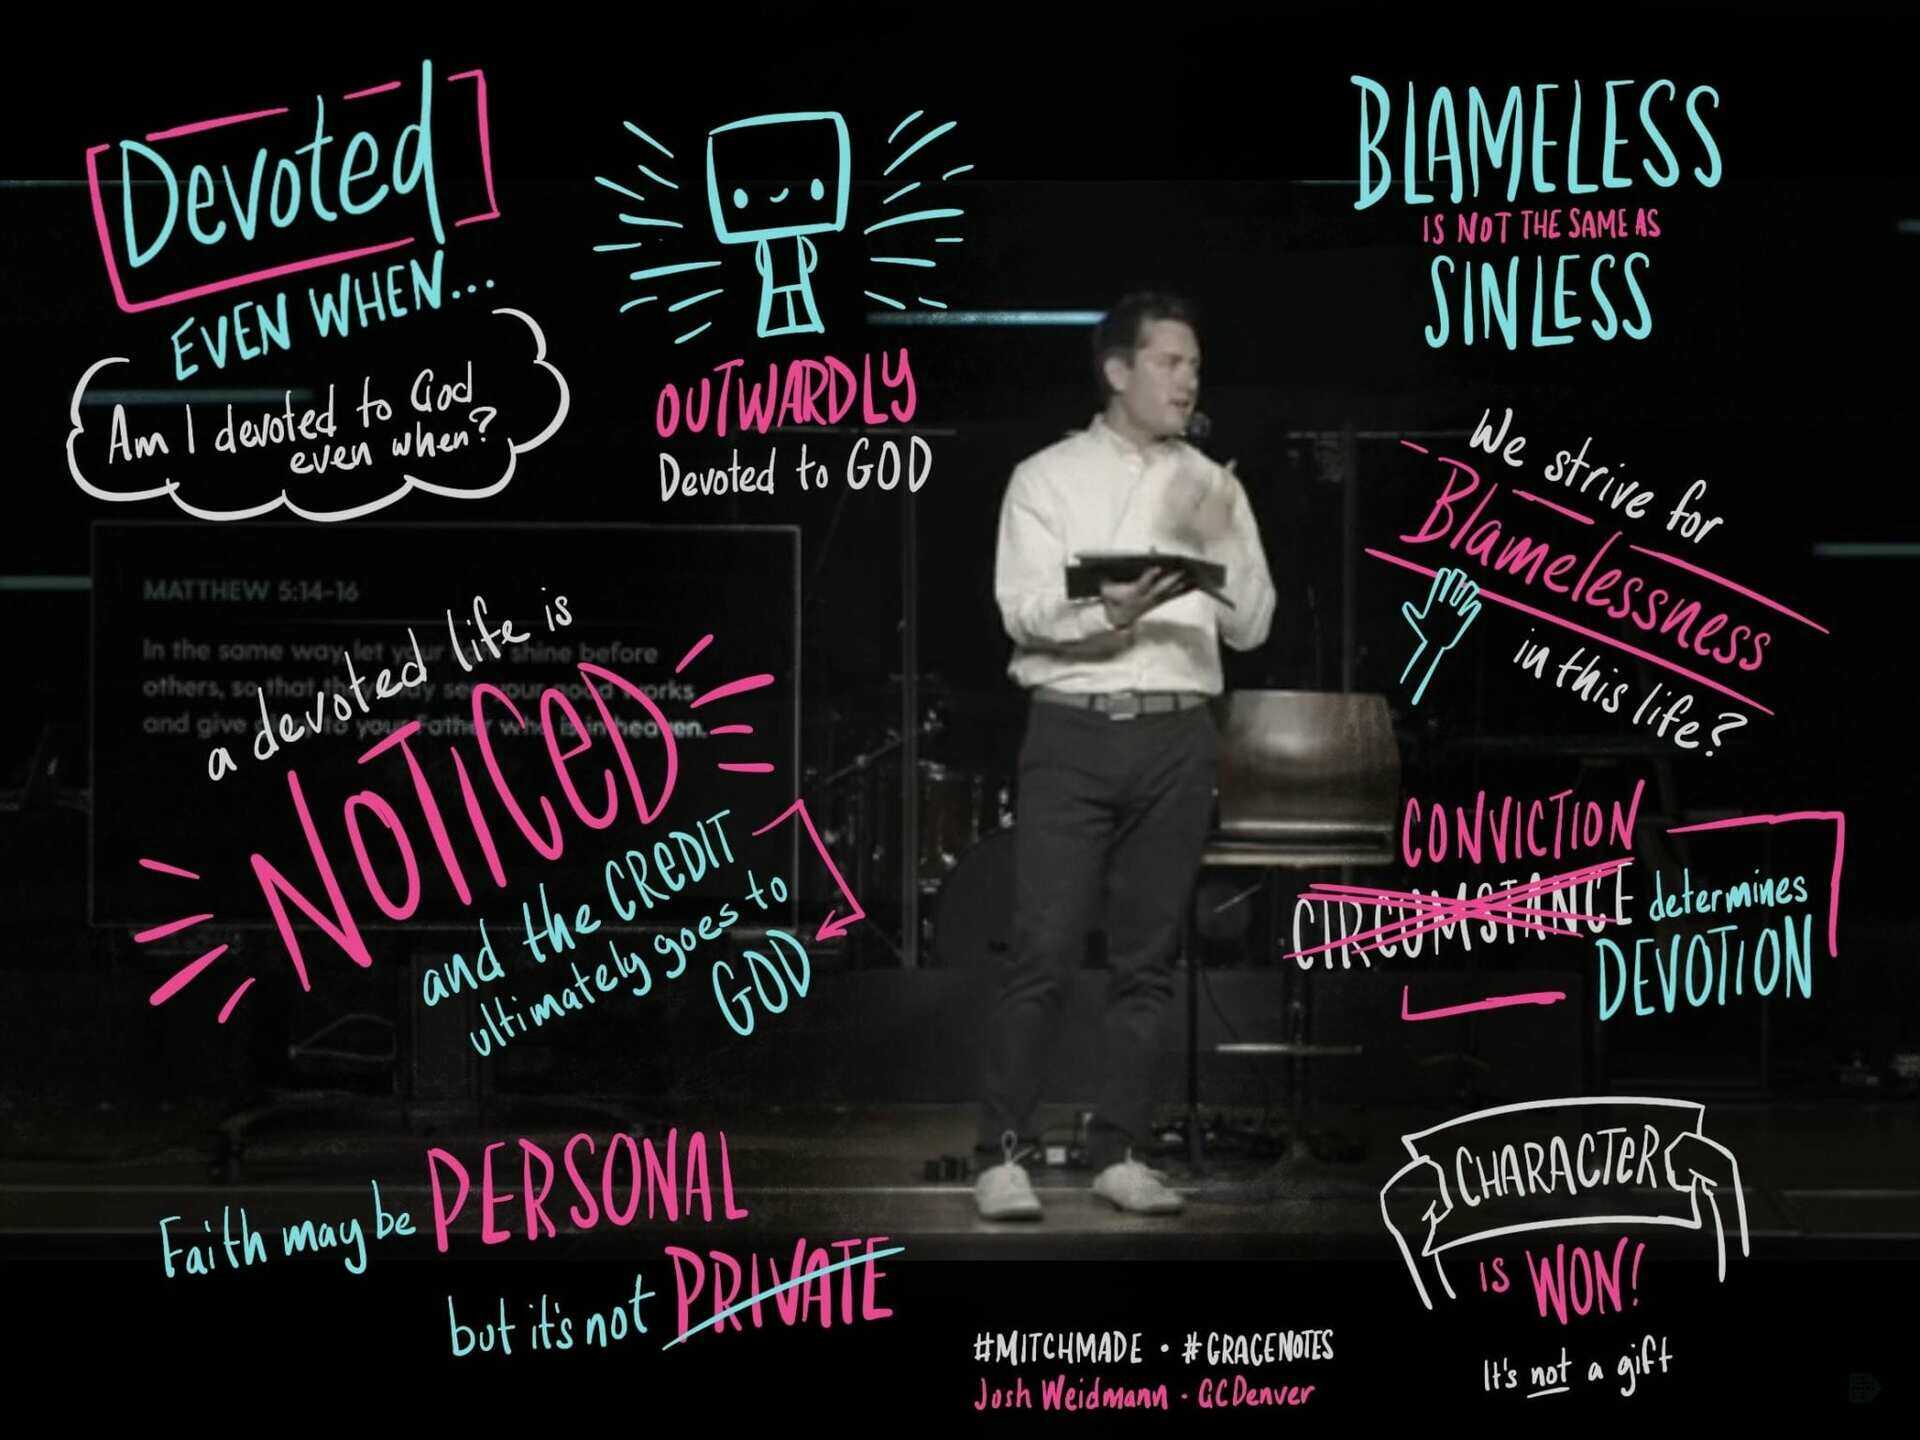 Devoted
EVEN WHEN...
Am I devoted to God
even when?
OUTWARDLY
Devoted to GOD
BLAMELESS
IS NOT THE SAME AS
SINLESS
We strive for
Blamelessness
in this life?
MATTHEW 5:14-16
In the same way, let your shine before
others, so that they may see your good works
and give to your Father who is in heaven.
a devoted life is
NOTICED
and the CREDIT
ultimately goes to
GOD
CONVICTION
CIRCUMSTANCE determines
DEVOTION
Faith may be PERSONAL
but it's not PRIVATE
CHARACTER
IS WON!
It's not a gift
#MITCHMADE • #GRACENOTES
Josh Weidmann - GCDenver